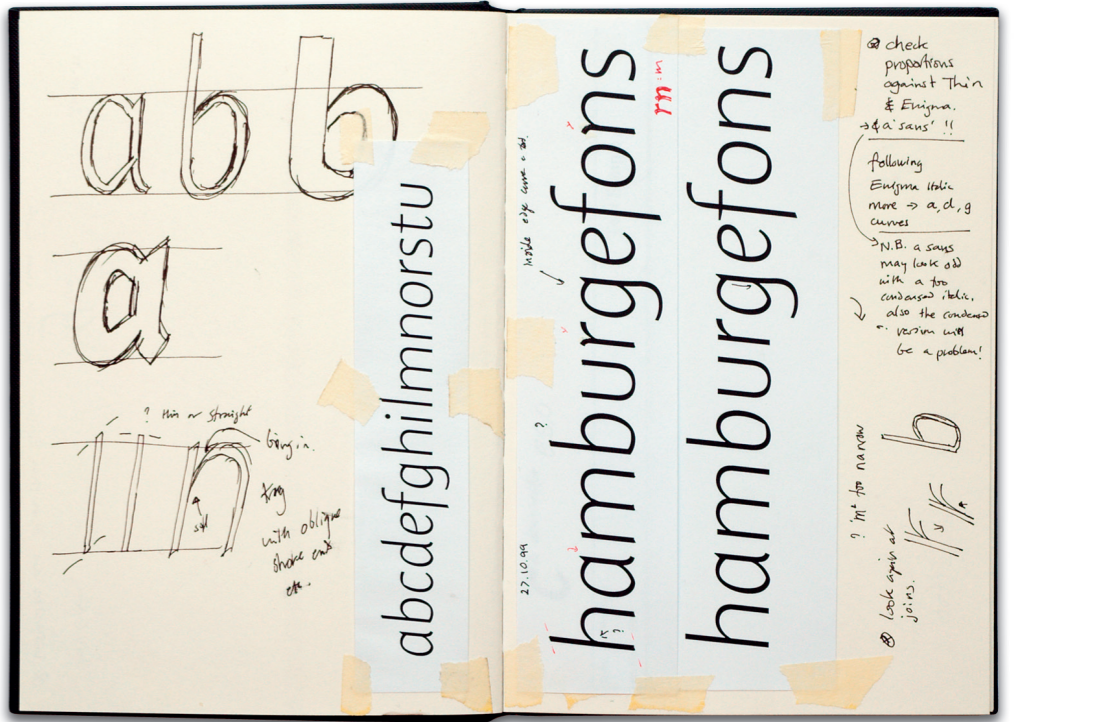 a b b
a
? thin or straight
Going in.
try
with oblique
stroke ends
etc..
abcdefghilmnorstu
inside edge curve
27.10.99
?
?
hamburgefons
rn = m
hamburgefons
check
proportions
against Thin
& Enigma.
→ & a 'sans' !!
following
Enigma Italic
more → a, d, g
curves
N.B. a sans
may look odd
with a too
condensed italic.
also the condensed
version will
be a problem!
? 'm' too narrow
b
look again at
joins.